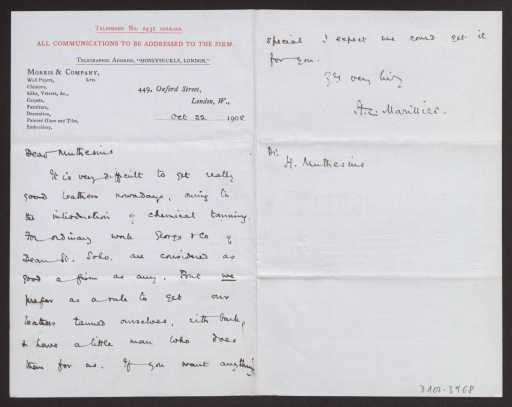 Telephone No. 2431 Gerrard.
ALL COMMUNICATIONS TO BE ADDRESSED TO THE FIRM.
Telegraphic Address, "HONEYSUCKLE, LONDON."
Morris & Company,
Ltd.
Wall Papers,
Chintzes,
Silks, Velvets, &c.,
Carpets,
Furniture,
Decoration,
Painted Glass and Tiles,
Embroidery.
449, Oxford Street,
London, W.,
Oct 22 1908
Dear Muthesius
It is very difficult to get really
good leathers nowadays, owing to
the introduction of chemical tanning.
For ordinary work George & Co of
Dean St. Soho. are considered as
good a firm as any. But we
prefer as a rule to get our
leathers tanned ourselves, with bark,
& have a little man who does
them for us. If you want anything
special I expect we could get it
for you.
Yrs very truly
H.C. Marillier.
Dr.
H. Muthesius
3101-3968